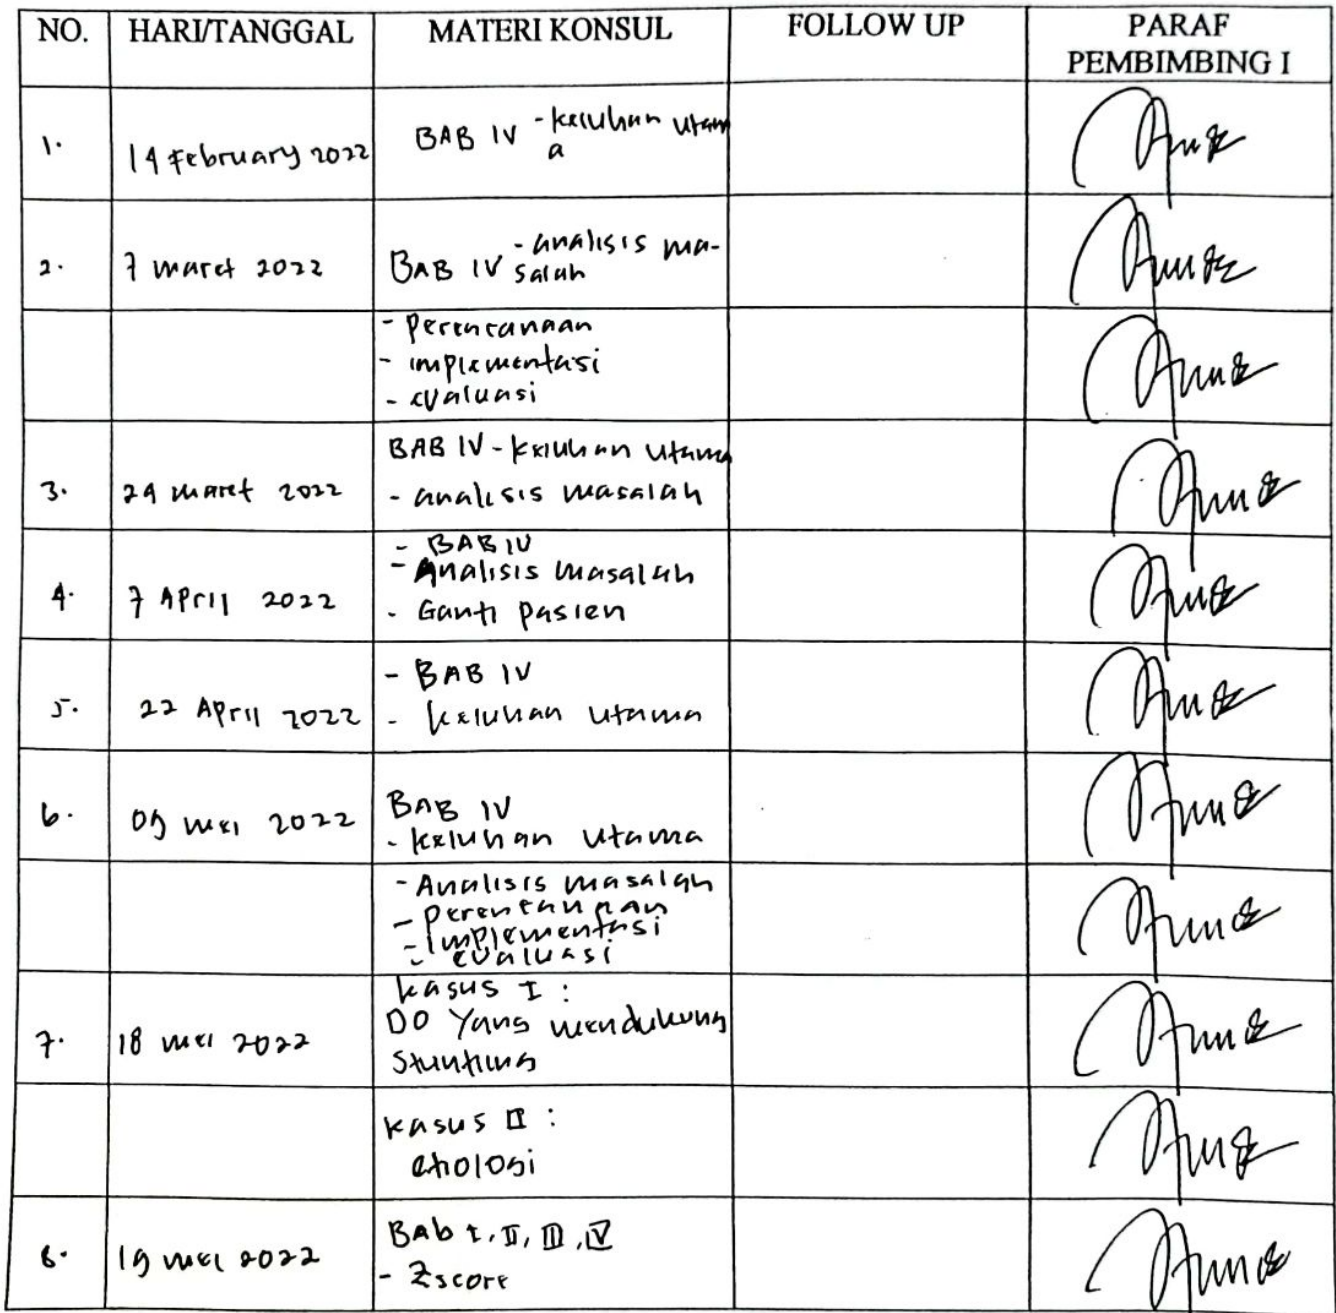 NO. HARI/TANGGAL MATERI KONSUL FOLLOW UP PARAF
PEMBIMBING I
1. 14 February 2022 BAB IV - keluhan utam
a
2. 7 maret 2022 BAB IV - analisis ma-
salah
- perencanaan
- implementasi
- evaluasi
3. 24 maret 2022 BAB IV - keluhan utama
- analisis masalah
4. 7 April 2022 - BAB IV
- Analisis masalah
- Ganti pasien
5. 22 April 2022 - BAB IV
- keluhan utama
6. 09 mei 2022 BAB IV
- keluhan utama
- Analisis masalah
- perencanaan
- Implementasi
- evaluasi
7. 18 mei 2022 kasus I :
DO Yang mendukung
Stunting
kasus II :
etiologi
8. 19 mei 2022 Bab I, II, III, IV
- Zscore